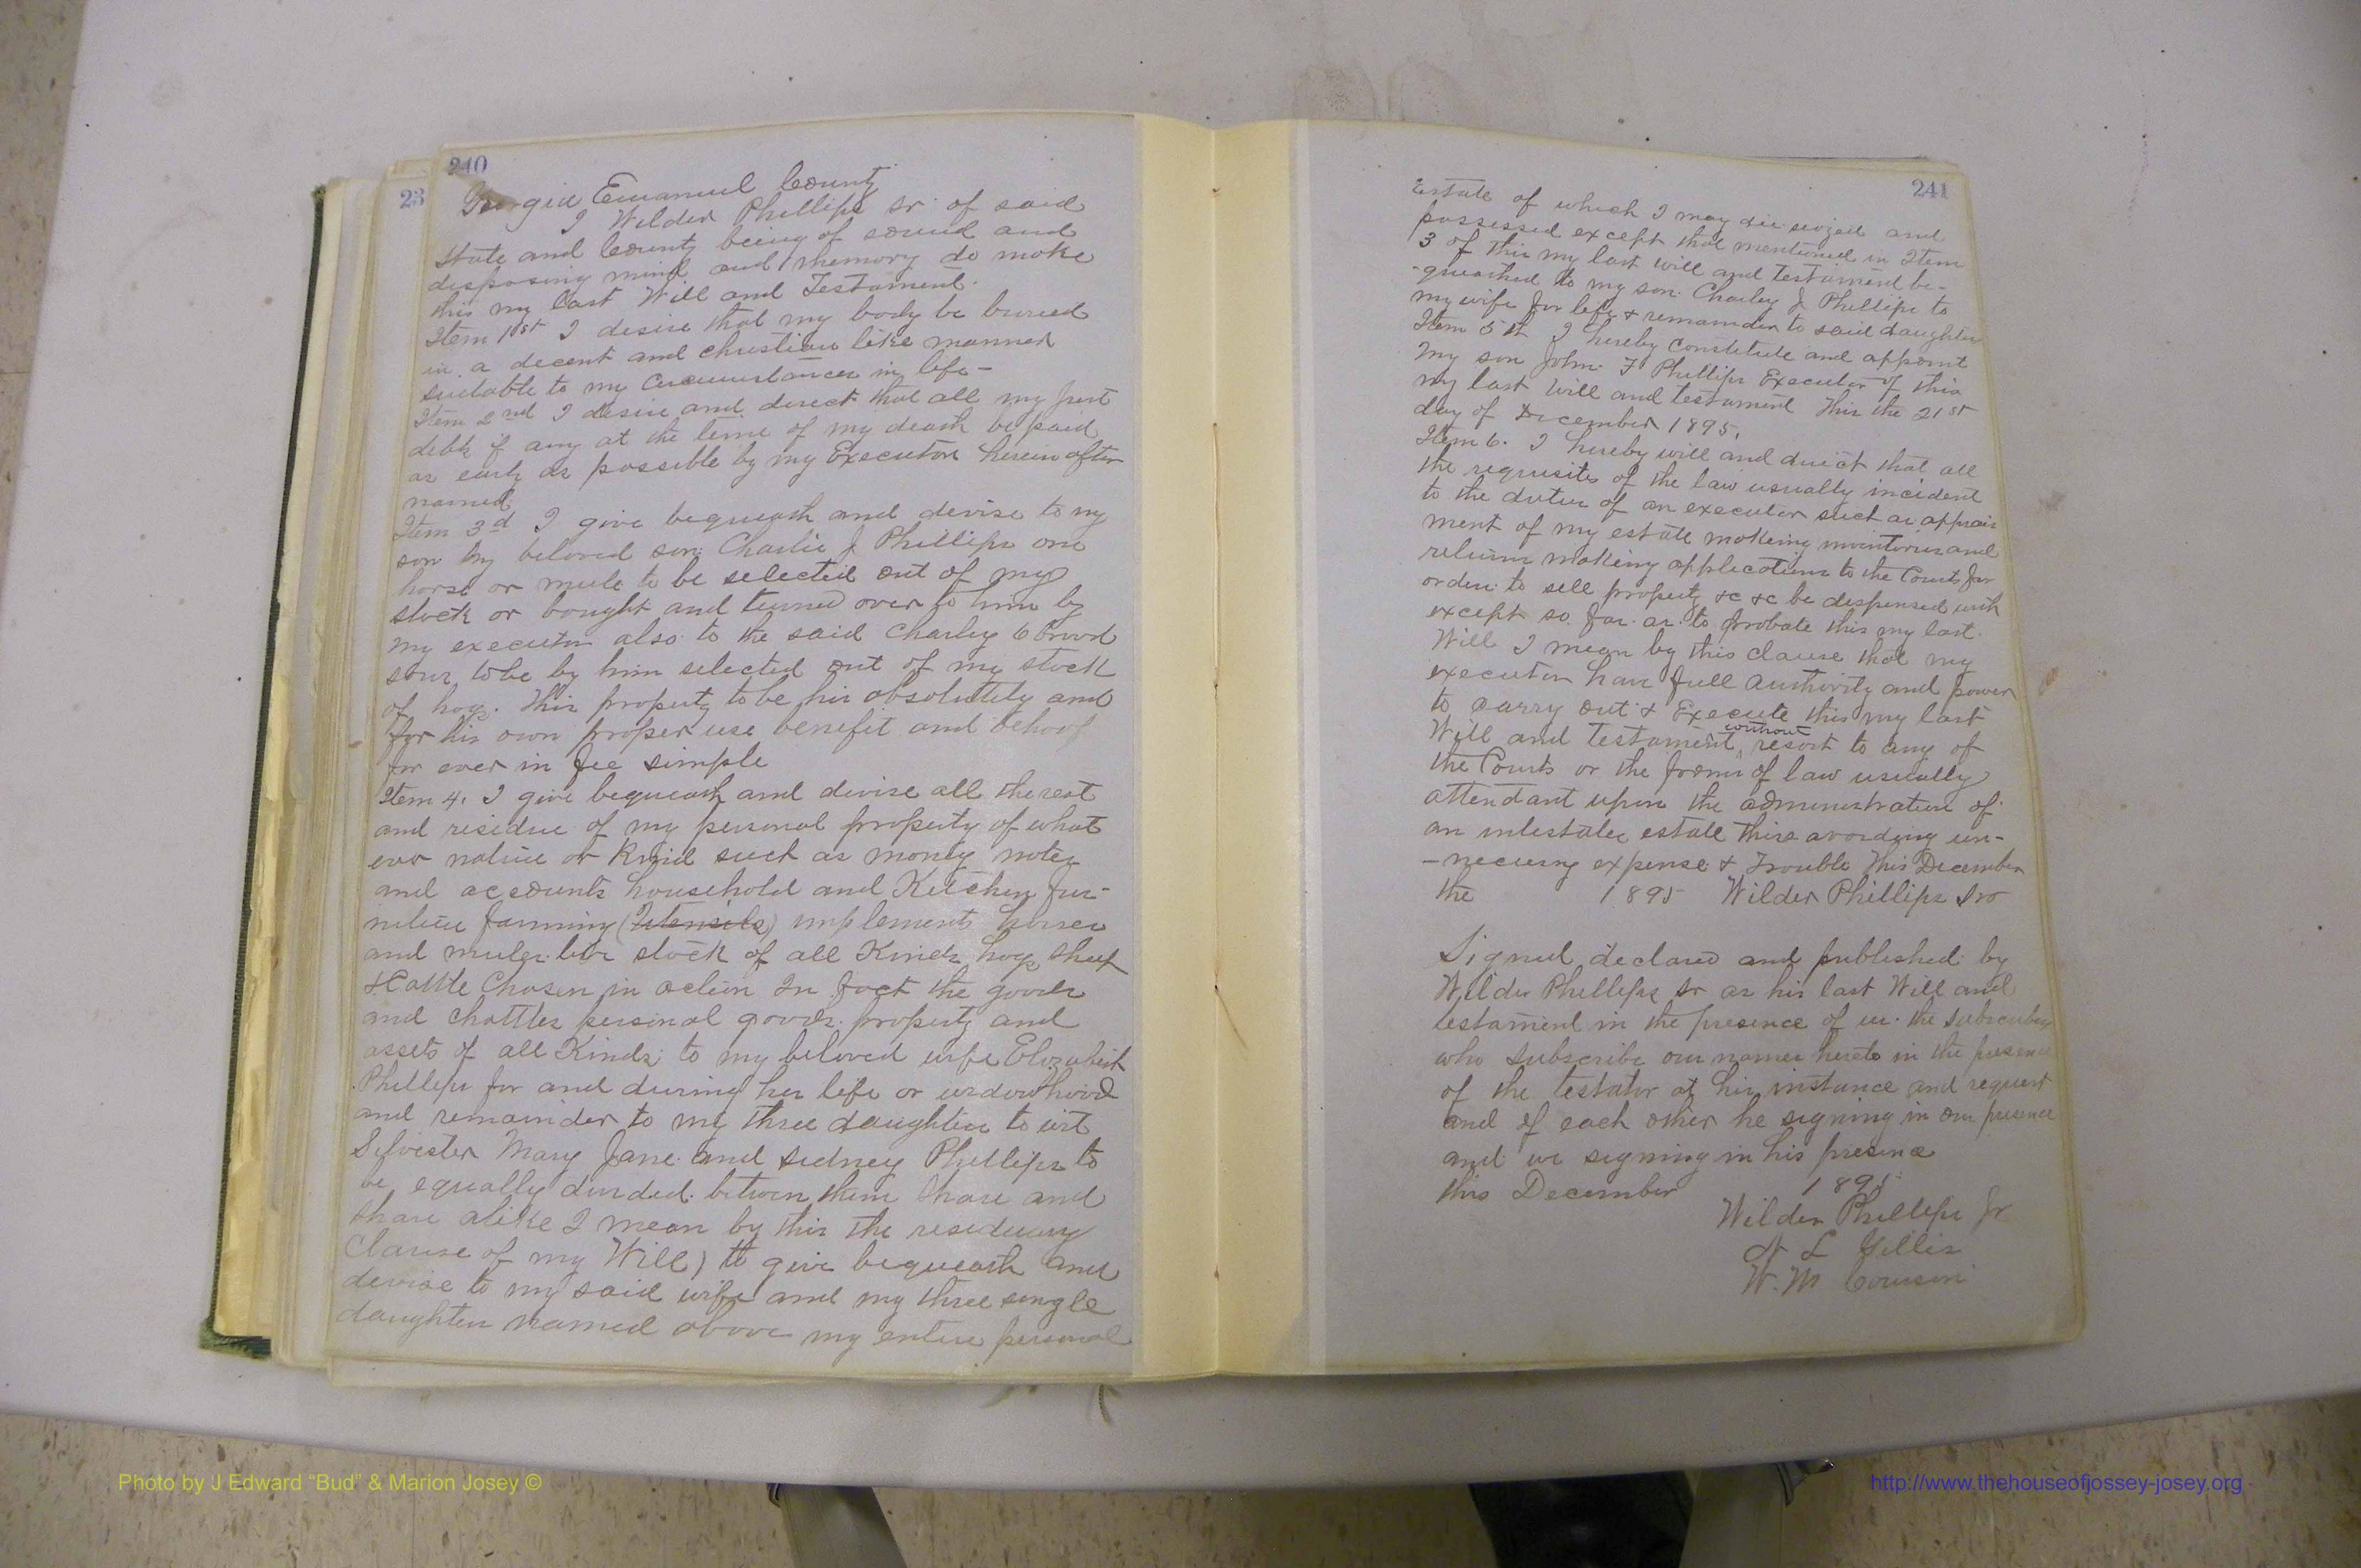 240
23
Georgia Emanuel County
I Wilder Phillips sr. of said
State and County being of sound and
disposing mind and memory do make
this my last Will and Testament.
Item 1st I desire that my body be buried
in a decent and christian like manner
suitable to my Circumstances in life-
Item 2nd I desire and direct that all my just
debts if any at the time of my death be paid
as early as possible by my Executor herein after
named
Item 3d I give bequeath and devise to my
son my beloved son Charlie J Phillips one
horse or mule to be selected out of my
stock or bought and turned over to him by
my executor also to the said Charley 6 brood
sows to be by him selected out of my stock
of hogs. This property to be his absolutely and
for his own proper use benefit and behoof
for ever in fee simple
Item 4. I give bequeath and devise all the rest
and residue of my personal property of what
ever nature or Kind such as money notes
and accounts household and Kitchen fur-
niture farming (Utensils) implements horses
and mules live stock of all Kinds hogs sheep
& Cattle Chosen in action In fact the goods
and chattles personal goods property and
assets of all Kinds to my beloved wife Elizabeth
Phillips for and during her life or widowhood
and remainder to my three daughters to wit
Sylvester Mary Jane and Sidney Phillips to
be equally divided between them share and
share alike I mean by this the residuary
Clause of my Will) to give bequeath and
devise to my said wife and my three single
daughters named above my entire personal
241
Estate of which I may die seized and
possessed except that mentioned in Item
3 of this my last will and testament be-
-queathed to my son Charley J Phillips to
my wife for life & remainder to said daughters
Item 5th I hereby Constitute and appoint
my son John F Phillips Executor of this
my last will and testament This the 21st
day of December 1895.
Item 6. I hereby will and direct that all
the requisites of the law usually incident
to the duties of an executor such as apprais
ment of my estate making inventories and
returns making applications to the Courts for
orders to sell property &c &c be dispensed with
except so far as to probate this my last
Will I mean by this clause that my
executor have full authority and power
to carry out & Execute this my last
Will and testament without resort to any of
the Courts or the forms of law usually
attendant upon the administration of
an intestate estate this avoiding un-
-necessary expense & trouble This December
the 1895 Wilder Phillips Sr
Signed declared and published by
Wilder Phillips sr as his last Will and
testament in the presence of us the subscribers
who subscribe our names hereto in the presence
of the testator at his instance and request
and of each other he signing in our presence
and we signing in his presence
this December 1895
Wilder Phillips Jr
N L Gillis
W. M Cowson
Photo by J Edward “Bud” & Marion Josey ©
http://www.thehouseofjossey-josey.org